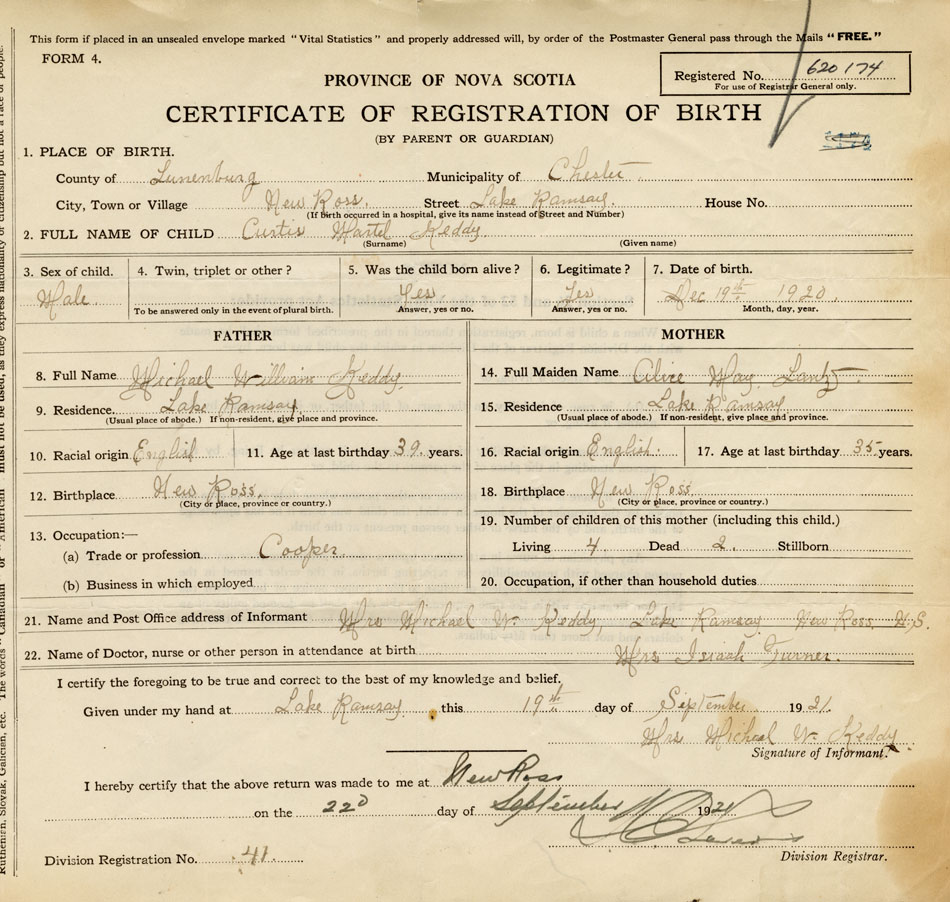 This form if placed in an unsealed envelope marked "Vital Statistics" and properly addressed will, by order of the Postmaster General pass through the Mails "FREE."
FORM 4.
Registered No. 620174
For use of Registrar General only.
PROVINCE OF NOVA SCOTIA
CERTIFICATE OF REGISTRATION OF BIRTH
(BY PARENT OR GUARDIAN)
1. PLACE OF BIRTH.
County of Lunenburg Municipality of Chester
City, Town or Village New Ross. Street Lake Ramsay. House No.
(If birth occurred in a hospital, give its name instead of Street and Number)
2. FULL NAME OF CHILD Curtis Martel Keddy.
(Surname) (Given name)
3. Sex of child. 4. Twin, triplet or other? 5. Was the child born alive? 6. Legitimate? 7. Date of birth.
Male Yes Yes Dec 19th 1920.
To be answered only in the event of plural birth. Answer, yes or no. Answer, yes or no. Month, day, year.
FATHER MOTHER
8. Full Name Michael William Keddy. 14. Full Maiden Name Alice May Lantz
9. Residence. Lake Ramsay. 15. Residence Lake Ramsay
(Usual place of abode.) If non-resident, give place and province. (Usual place of abode.) If non-resident, give place and province.
10. Racial origin English 11. Age at last birthday 39. years. 16. Racial origin English. 17. Age at last birthday 35 years.
12. Birthplace New Ross. 18. Birthplace New Ross.
(City or place, province or country.) (City or place, province or country.)
13. Occupation:— 19. Number of children of this mother (including this child.)
(a) Trade or profession Cooper Living 4 Dead 2. Stillborn
(b) Business in which employed 20. Occupation, if other than household duties
21. Name and Post Office address of Informant Mrs Michael W. Keddy Lake Ramsay New Ross N.S.
22. Name of Doctor, nurse or other person in attendance at birth Mrs Isaiah Turner.
I certify the foregoing to be true and correct to the best of my knowledge and belief.
Given under my hand at Lake Ramsay this 19th day of September 1921.
Mrs Micheal W. Keddy
Signature of Informant.
I hereby certify that the above return was made to me at New Ross
on the 22D day of September 1921
Division Registration No. 41. Division Registrar.
Ruthenien, Slovak, Galician, etc. The words "Canadian" or "American" must not be used, as they express nationality or citizenship but not a race of people.